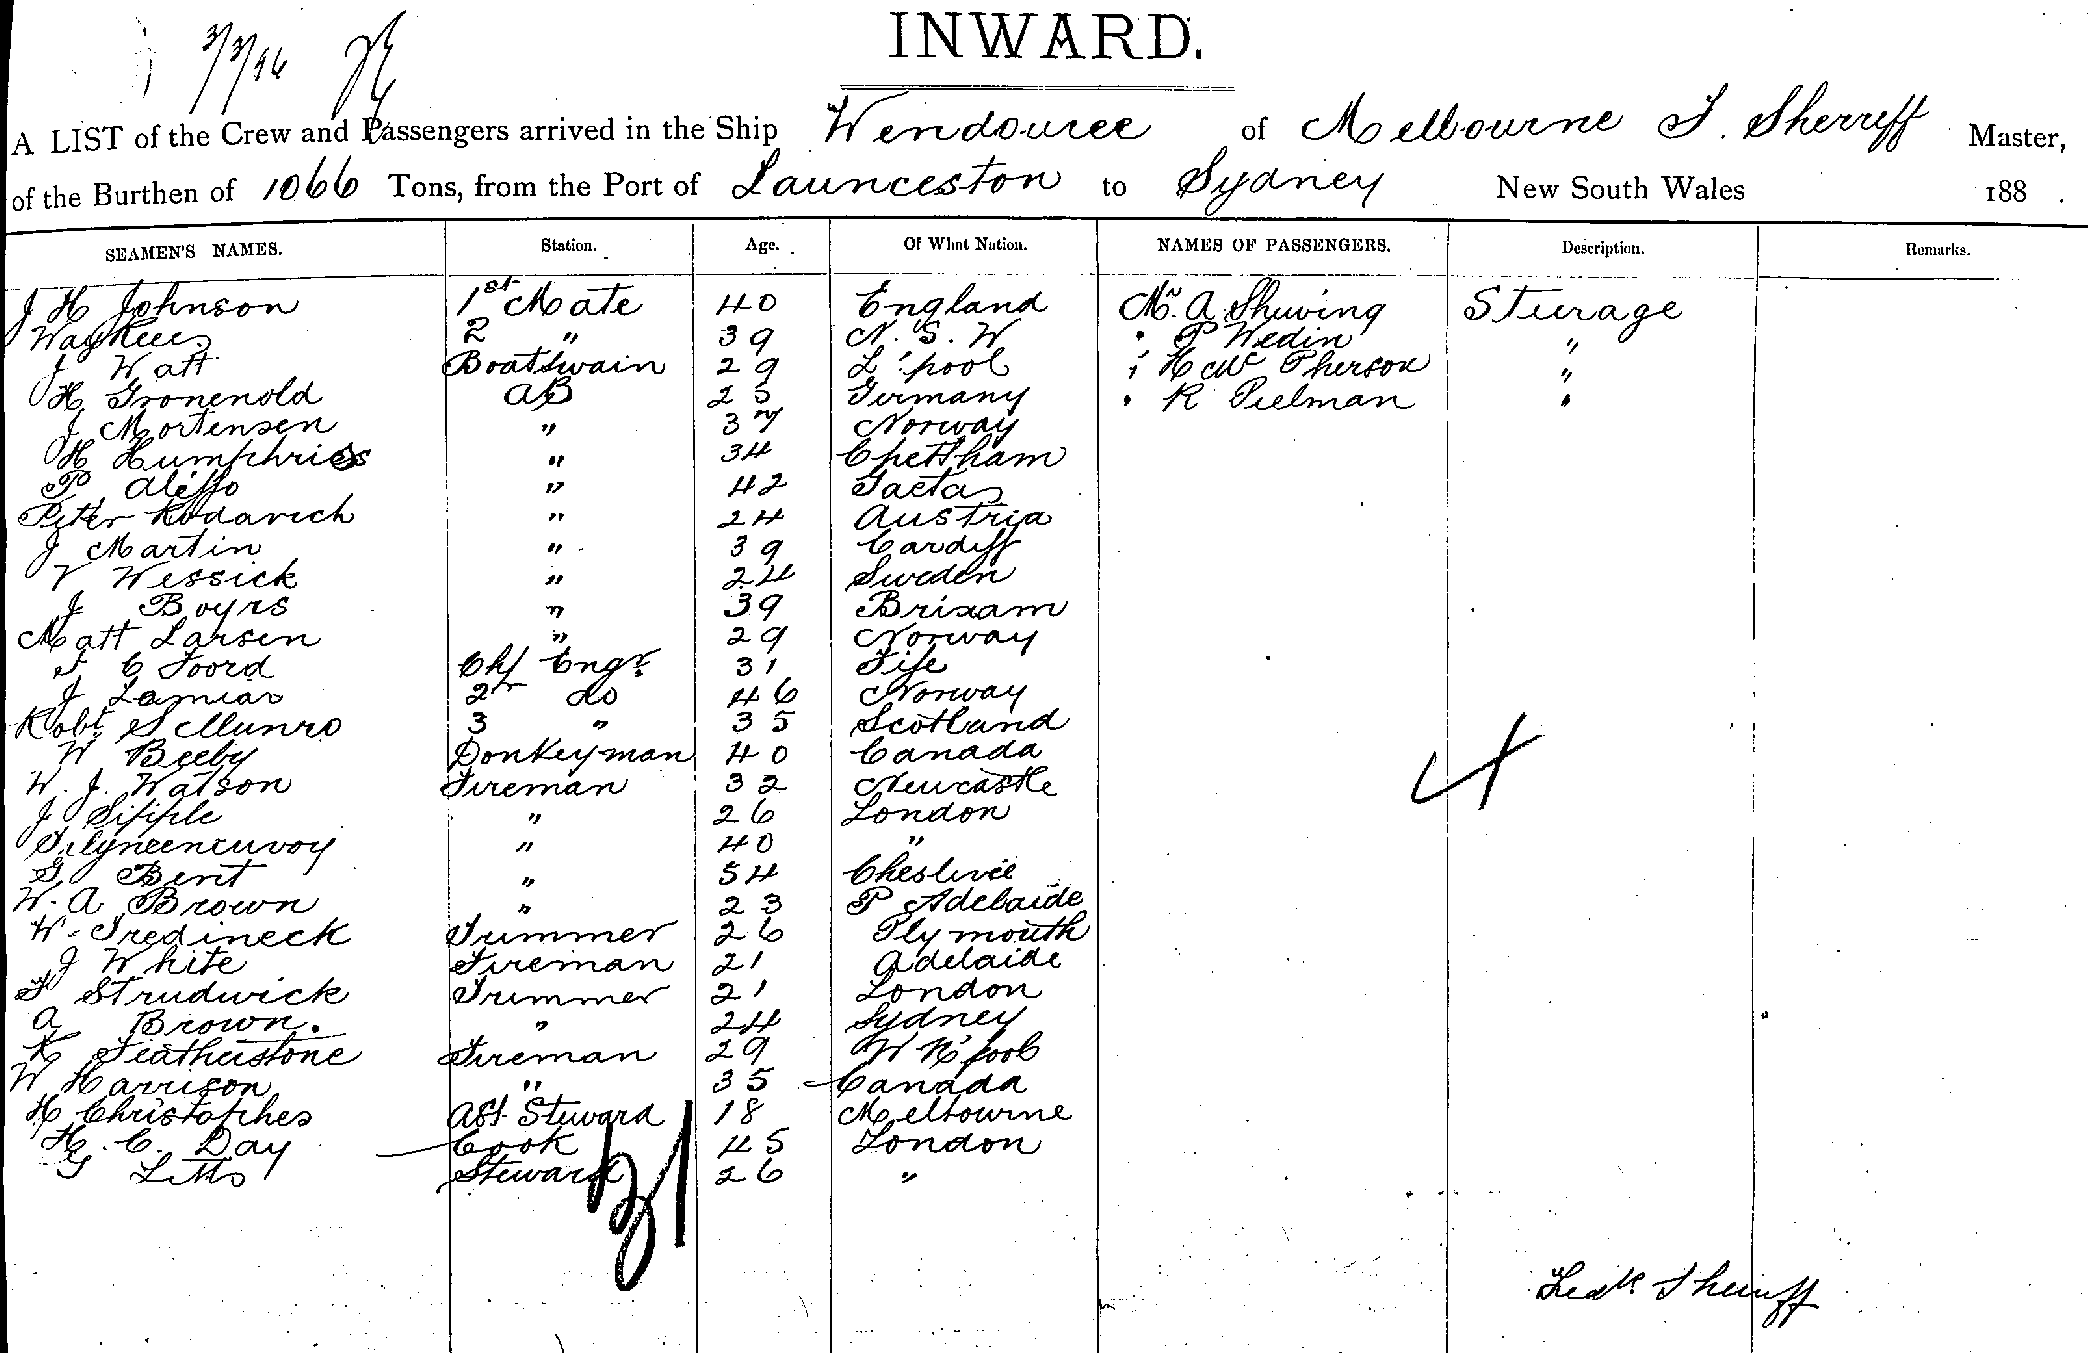 3/3/96
INWARD.
A LIST of the Crew and Passengers arrived in the Ship Wendouree of Melbourne F. Sherriff Master,
of the Burthen of 1066 Tons, from the Port of Launceston to Sydney New South Wales 188 .
SEAMEN'S NAMES. Station. Age. Of What Nation. NAMES OF PASSENGERS. Description. Remarks.
J H Johnson 1st Mate 40 England Mr. A Shuving Steerage
2 " 39 N. S. W " P Wedin "
J Watt Boatswain 29 L'pool " H Mc Pherson "
H Gronenold AB 25 Germany " R Pielman "
J Mortensen " 37 Norway
H Humphriess " 34 Cheltham
P. " 42 Gaeta
Peter Rodavich " 24 Austria
J Martin " 39 Cardiff
V Wessick " 24 Sweden
J Boyrs " 39 Brixam
Matt Larsen " 29 Norway
F C Foord Chf Engr. 31 Fife
J Lamiar 2nd do 46 Norway
Robt. S Munro 3 " 35 Scotland
W Beeby Donkeyman 40 Canada
W. J. Watson Fireman 32 Newcastle
J Sipple " 26 London
" 40 "
G Bent " 54
W. A Brown " 23 P Adelaide
W. Tredineck Trimmer 26 Plymouth
J White Fireman 21 Adelaide
F Strudwick Trimmer 21 London
A Brown. " 24 Sydney
K Featherstone Fireman 29 W H'pool
W Harrison " 35 Canada
H Christophes Ast Steward 18 Melbourne
H. C. Day Cook 45 London
G Letts Steward 26 "
31
4
Fredk Sherriff